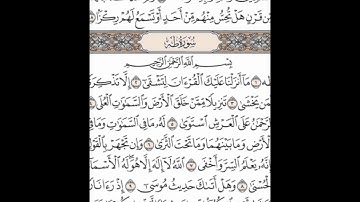 مِّن قَرْنٍ هَلْ تُحِسُّ مِنْهُم مِّنْ أَحَدٍ أَوْ تَسْمَعُ لَهُمْ رِكْزًا
سُورَةُ طه
بِسْمِ اللَّهِ الرَّحْمَٰنِ الرَّحِيمِ
مَا أَنزَلْنَا عَلَيْكَ الْقُرْءَانَ لِتَشْقَىٰ ٢ إِلَّا تَذْكِرَةً
يَخْشَىٰ ٣ تَنزِيلًا مِّمَّنْ خَلَقَ الْأَرْضَ وَالسَّمَٰوَٰتِ الْعُلَى
عَلَى الْعَرْشِ اسْتَوَىٰ ٥ لَهُ مَا فِي السَّمَٰوَٰتِ وَمَا فِي
وَمَا بَيْنَهُمَا وَمَا تَحْتَ الثَّرَىٰ ٦ وَإِن تَجْهَرْ بِالْقَوْلِ
يَعْلَمُ السِّرَّ وَأَخْفَى ٧ اللَّهُ لَا إِلَٰهَ إِلَّا هُوَ لَهُ
٨ وَهَلْ أَتَىٰكَ حَدِيثُ مُوسَىٰ ٩ إِذْ رَءَا نَارًا